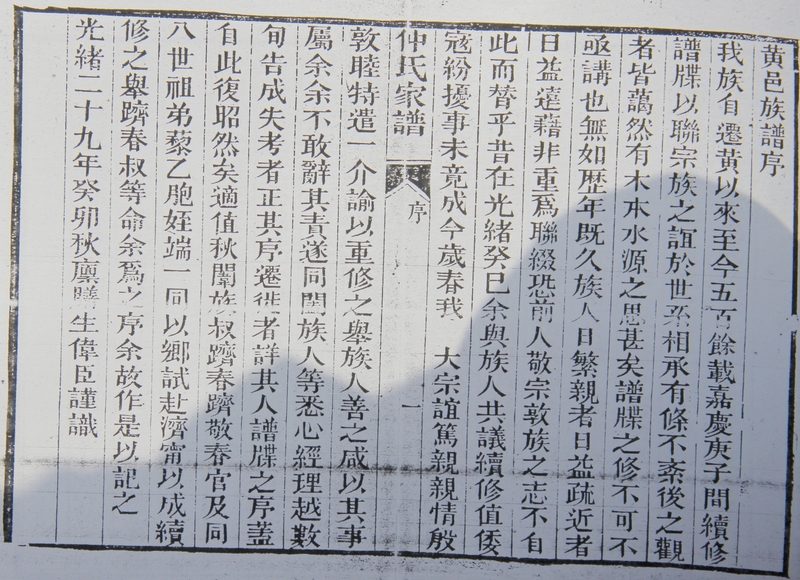 黃邑族譜序
我族自遷黃以來至今五百餘載嘉慶庚子間續修
譜牒以聯宗族之誼於世系相承有條不紊後之觀
者皆藹然有木本水源之思甚矣譜牒之修不可不
亟講也無如歷年既久族人日繁親者日益疏近者
日益遠藉非重爲聯綴恐前人敬宗敦族之志不自
此而替乎昔在光緒癸巳余與族人共議續修值倭
寇紛擾事未竟成今歲春我 大宗誼篤親親情殷
仲氏家譜 序 一
敦睦特遣一介諭以重修之舉族人善之咸以其事
屬余余不敢辭其責遂同闔族人等悉心經理越數
旬告成失考者正其序遷徙者詳其人譜牒之序蓋
自此復昭然矣適值秋闈族叔躋春躋敬春官及同
八世祖弟藜乙胞姪端一同以鄉試赴濟甯以成續
修之舉躋春叔等命余爲之序余故作是以記之
光緒二十九年癸卯秋廩膳生偉臣謹識